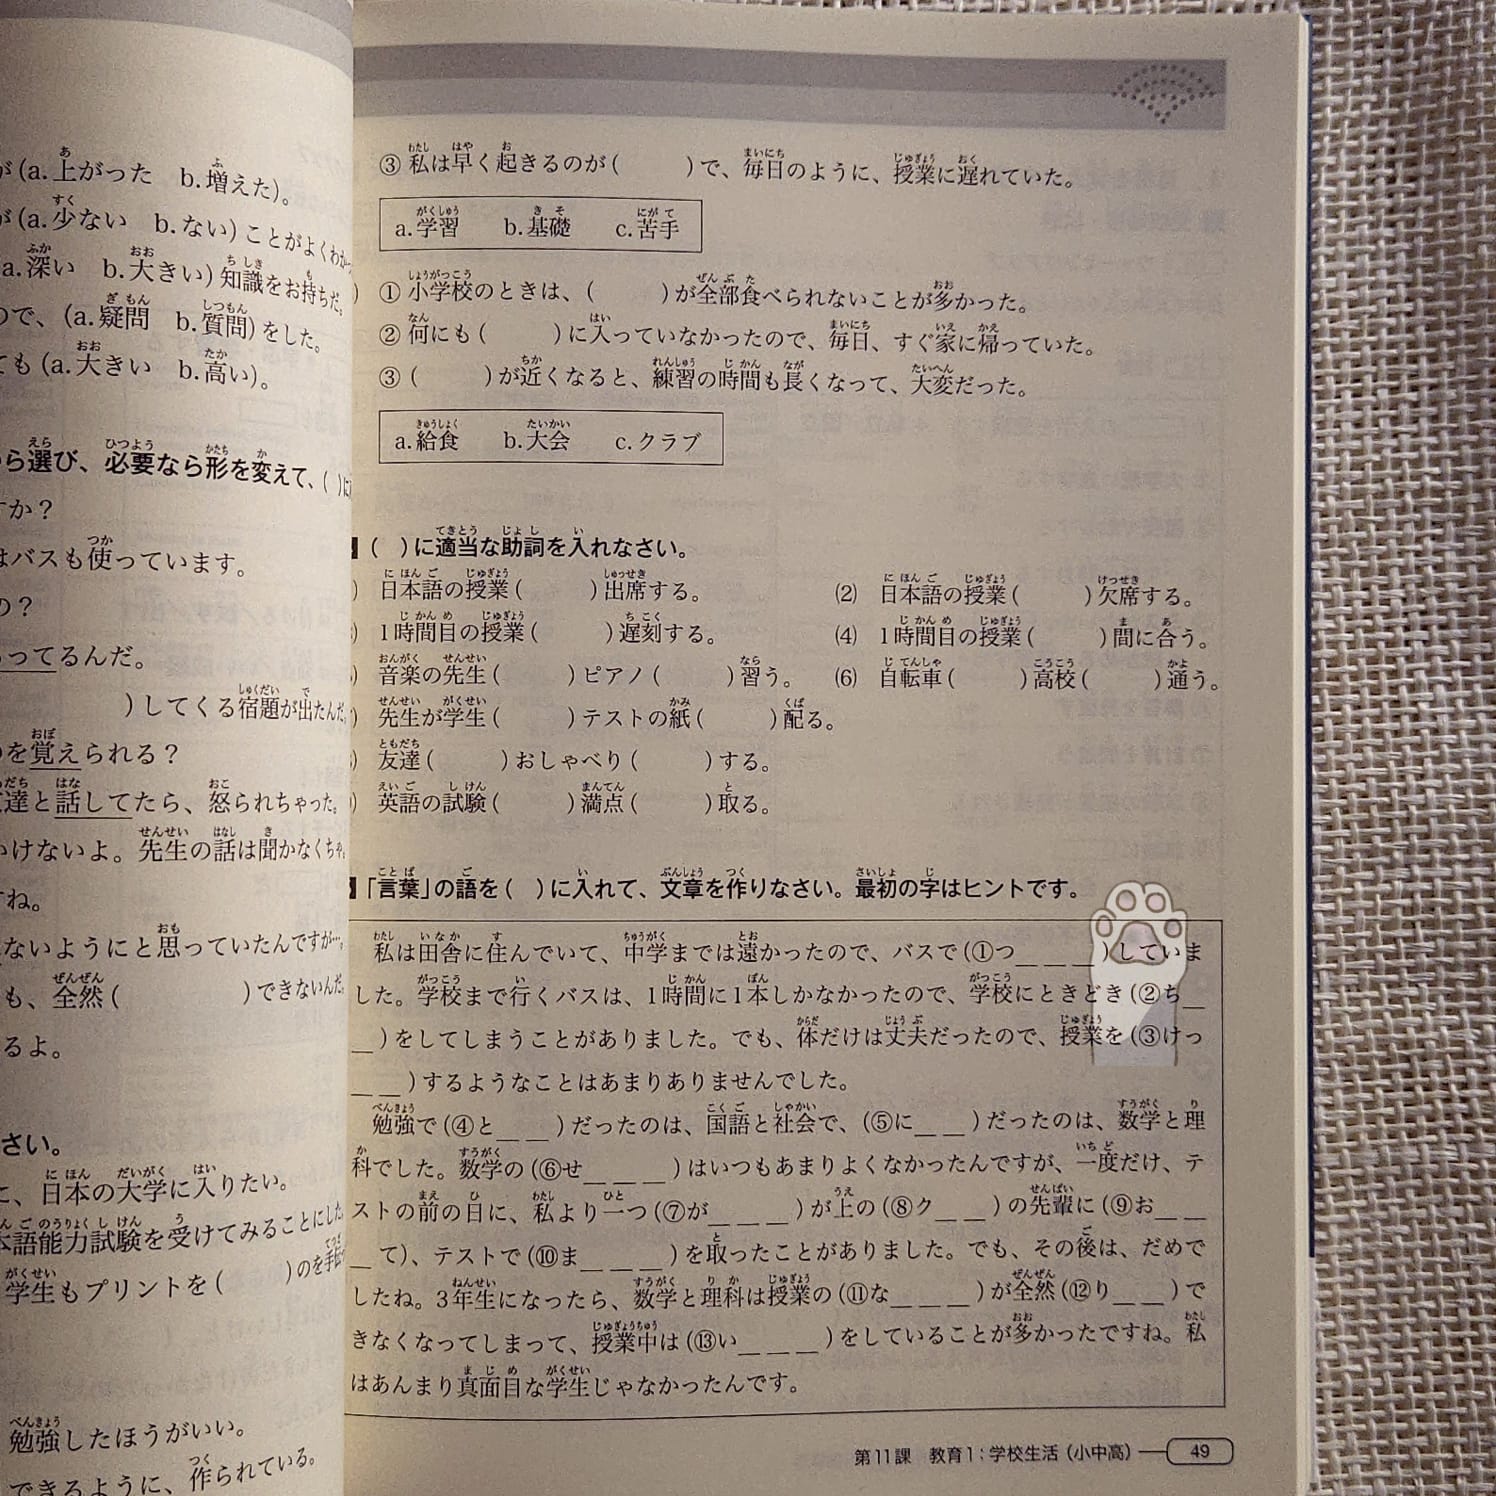 が(a.上がった b.増えた)。
が(a.少ない b.ない)ことがよくわか
a.深い b.大きい)知識をお持ちだ。
ので、(a.疑問 b.質問)をした。
ても(a.大きい b.高い)。
ら選び、必要なら形を変えて、( )に
すか？
はバスも使っています。
の？
ってるんだ。
)してくる宿題が出たんだ
を覚えられる？
達と話してたら、怒られちゃった。
いけないよ。先生の話は聞かなくちゃ。
すね。
ないようにと思っていたんですが…。
も、全然( )できないんだ。
るよ。
さい。
に、日本の大学に入りたい。
本語能力試験を受けてみることにした
学生もプリントを( )のを手伝
勉強したほうがいい。
できるように、作られている。
③ 私は早く起きるのが( )で、毎日のように、授業に遅れていた。
a.学習 b.基礎 c.苦手
) ① 小学校のときは、( )が全部食べられないことが多かった。
② 何にも( )に入っていなかったので、毎日、すぐ家に帰っていた。
③ ( )が近くなると、練習の時間も長くなって、大変だった。
a.給食 b.大会 c.クラブ
( )に適当な助詞を入れなさい。
) 日本語の授業( )出席する。 (2) 日本語の授業( )欠席する。
) 1時間目の授業( )遅刻する。 (4) 1時間目の授業( )間に合う。
) 音楽の先生( )ピアノ( )習う。 (6) 自転車( )高校( )通う。
) 先生が学生( )テストの紙( )配る。
) 友達( )おしゃべり( )する。
) 英語の試験( )満点( )取る。
「言葉」の語を( )に入れて、文章を作りなさい。最初の字はヒントです。
私は田舎に住んでいて、中学までは遠かったので、バスで(①つ＿＿＿)していま
した。学校まで行くバスは、1時間に1本しかなかったので、学校にときどき(②ち＿
＿)をしてしまうことがありました。でも、体だけは丈夫だったので、授業を(③けっ
＿＿)するようなことはあまりありませんでした。
勉強で(④と＿＿)だったのは、国語と社会で、(⑤に＿＿)だったのは、数学と理
科でした。数学の(⑥せ＿＿＿)はいつもあまりよくなかったんですが、一度だけ、テ
ストの前の日に、私より一つ(⑦が＿＿＿)が上の(⑧ク＿＿)の先輩に(⑨お＿＿
＿て)、テストで(⑩ま＿＿＿)を取ったことがありました。でも、その後は、だめで
したね。3年生になったら、数学と理科は授業の(⑪な＿＿＿)が全然(⑫り＿＿)で
きなくなってしまって、授業中は(⑬い＿＿＿)をしていることが多かったですね。私
はあんまり真面目な学生じゃなかったんです。
第11課 教育1：学校生活（小中高） 49